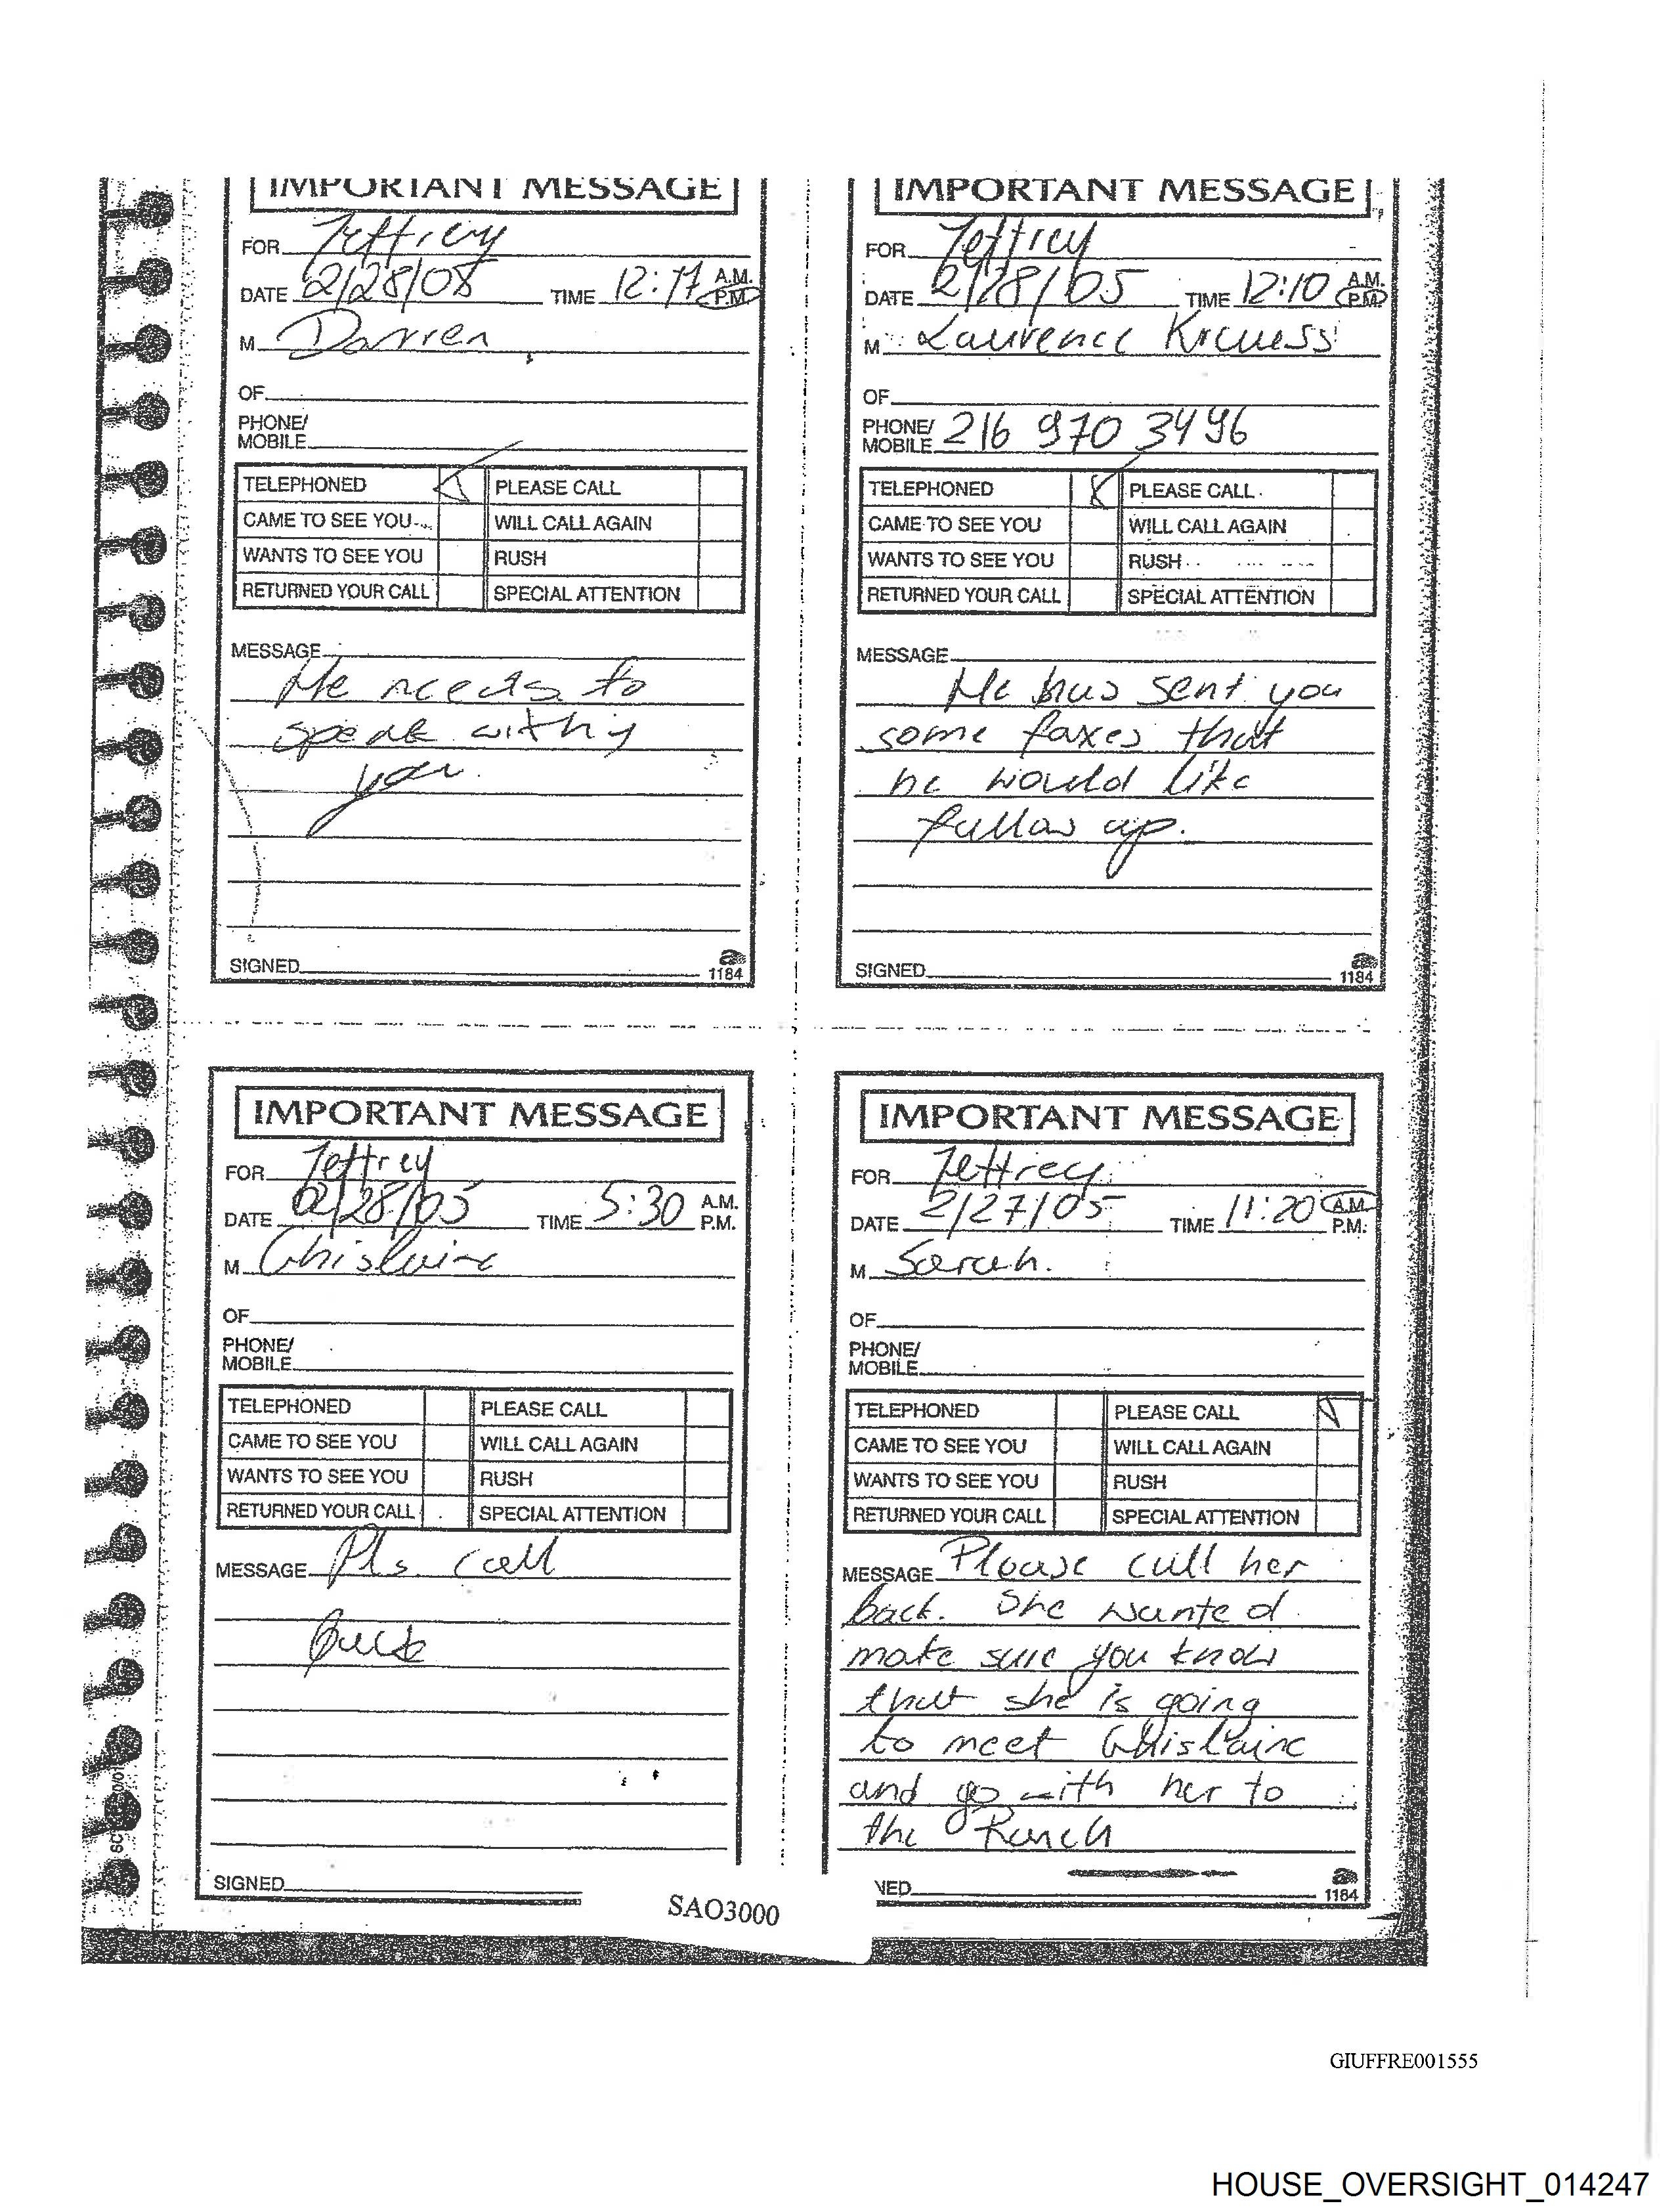 IMPORTANT MESSAGE
FOR Jeffrey
DATE 2/28/05 TIME 12:17 A.M. P.M.
M Darren
OF
PHONE/
MOBILE
TELEPHONED PLEASE CALL
CAME TO SEE YOU WILL CALL AGAIN
WANTS TO SEE YOU RUSH
RETURNED YOUR CALL SPECIAL ATTENTION
MESSAGE
He needs to
speak with
you.
SIGNED
1184
IMPORTANT MESSAGE
FOR Jeffrey
DATE 2/28/05 TIME 12:10 A.M. P.M.
M Laurence
OF
PHONE/
MOBILE 216 970 3496
TELEPHONED PLEASE CALL
CAME TO SEE YOU WILL CALL AGAIN
WANTS TO SEE YOU RUSH
RETURNED YOUR CALL SPECIAL ATTENTION
MESSAGE
He has sent you
some faxes that
he would like
follow up.
SIGNED
1184
IMPORTANT MESSAGE
FOR Jeffrey
DATE 02/28/05 TIME 5:30 A.M. P.M.
M Ghislaine
OF
PHONE/
MOBILE
TELEPHONED PLEASE CALL
CAME TO SEE YOU WILL CALL AGAIN
WANTS TO SEE YOU RUSH
RETURNED YOUR CALL SPECIAL ATTENTION
MESSAGE Pls. call
back
SIGNED
IMPORTANT MESSAGE
FOR Jeffrey
DATE 2/27/05 TIME 11:20 A.M. P.M.
M Sarah.
OF
PHONE/
MOBILE
TELEPHONED PLEASE CALL
CAME TO SEE YOU WILL CALL AGAIN
WANTS TO SEE YOU RUSH
RETURNED YOUR CALL SPECIAL ATTENTION
MESSAGE Please call her
back. She wanted
make sure you know
that she is going
to meet Ghislaine
and go with her to
the Ranch
NED
1184
SAO3000
GIUFFRE001555
HOUSE_OVERSIGHT_014247